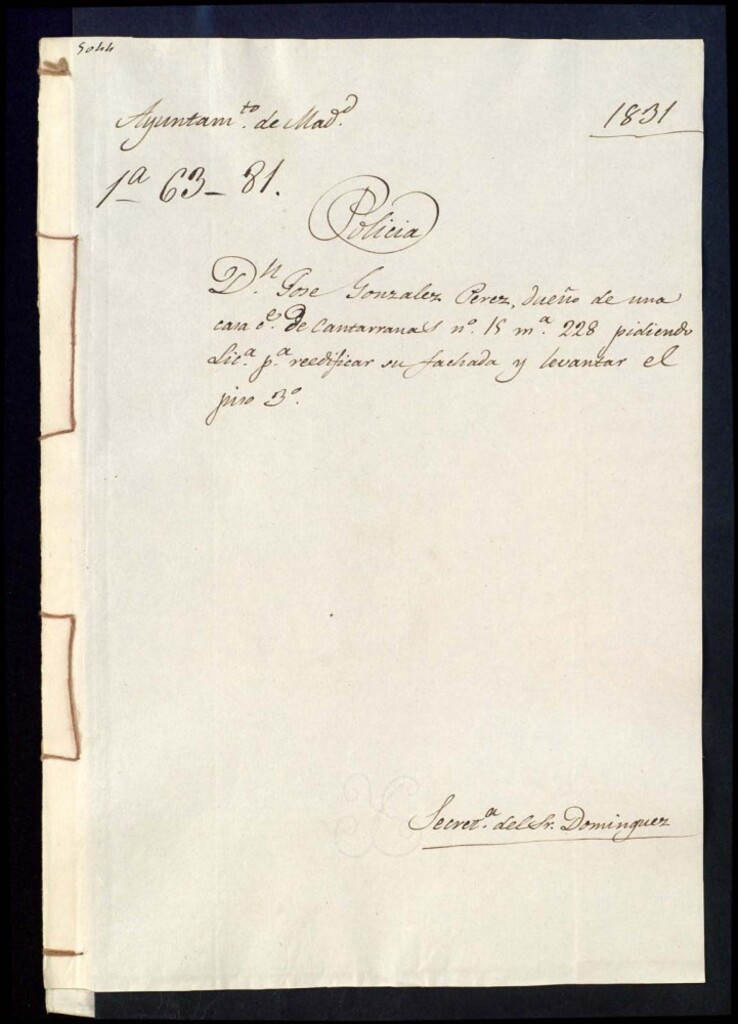 5044
Ayuntam.to de Mad.d
1831
1a 63-81.
Policia
D.n Jose Gonzalez Perez, dueño de una
casa c.e de Cantarranas nº. 15 m.a 228 pidiendo
Lic.a p.a reedificar su fachada y levantar el
piso 3º.
Secret.a del Sr. Dominguez